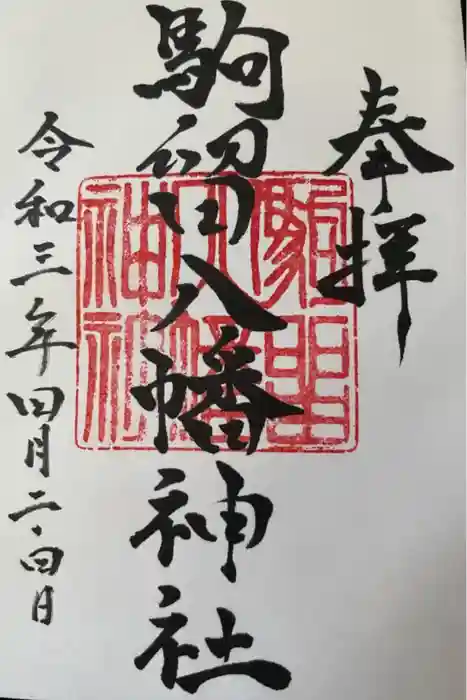 奉拝
駒留八幡神社
駒留八幡神社
令和三年四月二四日